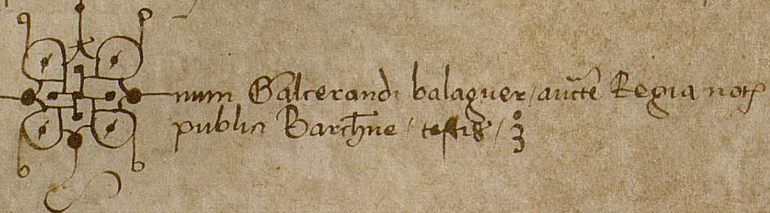 num Galcerandi balaguer / aucte Regia not
publici Barchne / testis /